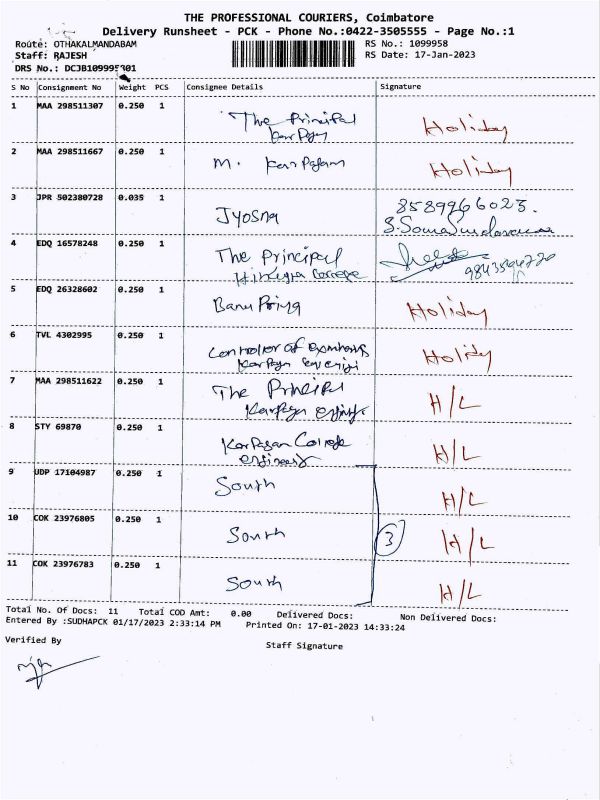 THE PROFESSIONAL COURIERS, Coimbatore
Delivery Runsheet - PCK - Phone No.:0422-3505555 - Page No.:1
Route: OTHAKALMANDABAM RS No.: 1099958
Staff: RAJESH RS Date: 17-Jan-2023
DRS No.: DCJB109995 801
S No Consignment No Weight PCS Consignee Details Signature
1 MAA 298511307 0.250 1 The Principal Holiday
2 MAA 298511667 0.250 1 M. Karpagam Holiday
3 JPR 502380728 0.035 1 Jyosna 8589966023.
4 EDQ 16578248 0.250 1 The Principal
5 EDQ 26328602 0.250 1 Banu Priya Holiday
6 TVL 4302995 0.250 1 Controller of Holiday
7 MAA 298511622 0.250 1 The Principal H/L
8 STY 69870 0.250 1 Karpagam College H/L
9 UDP 17104987 0.250 1 South H/L
10 COK 23976805 0.250 1 South 3 H/L
11 COK 23976783 0.250 1 South H/L
Total No. Of Docs: 11 Total COD Amt: 0.00 Delivered Docs: Non Delivered Docs:
Entered By :SUDHAPCK 01/17/2023 2:33:14 PM Printed On: 17-01-2023 14:33:24
Verified By Staff Signature